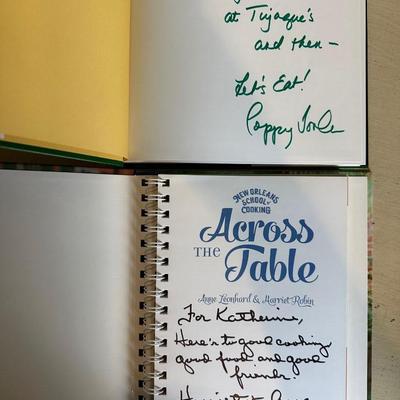 at Tujague's
and then –
Let's Eat!
Poppy Tooker
NEW ORLEANS
SCHOOL of
COOKING
Across
THE
Table
Anne Leonhard & Harriet Robin
For Katherine,
Here's to good cooking
good food and good
friends!
Harriet & Anne